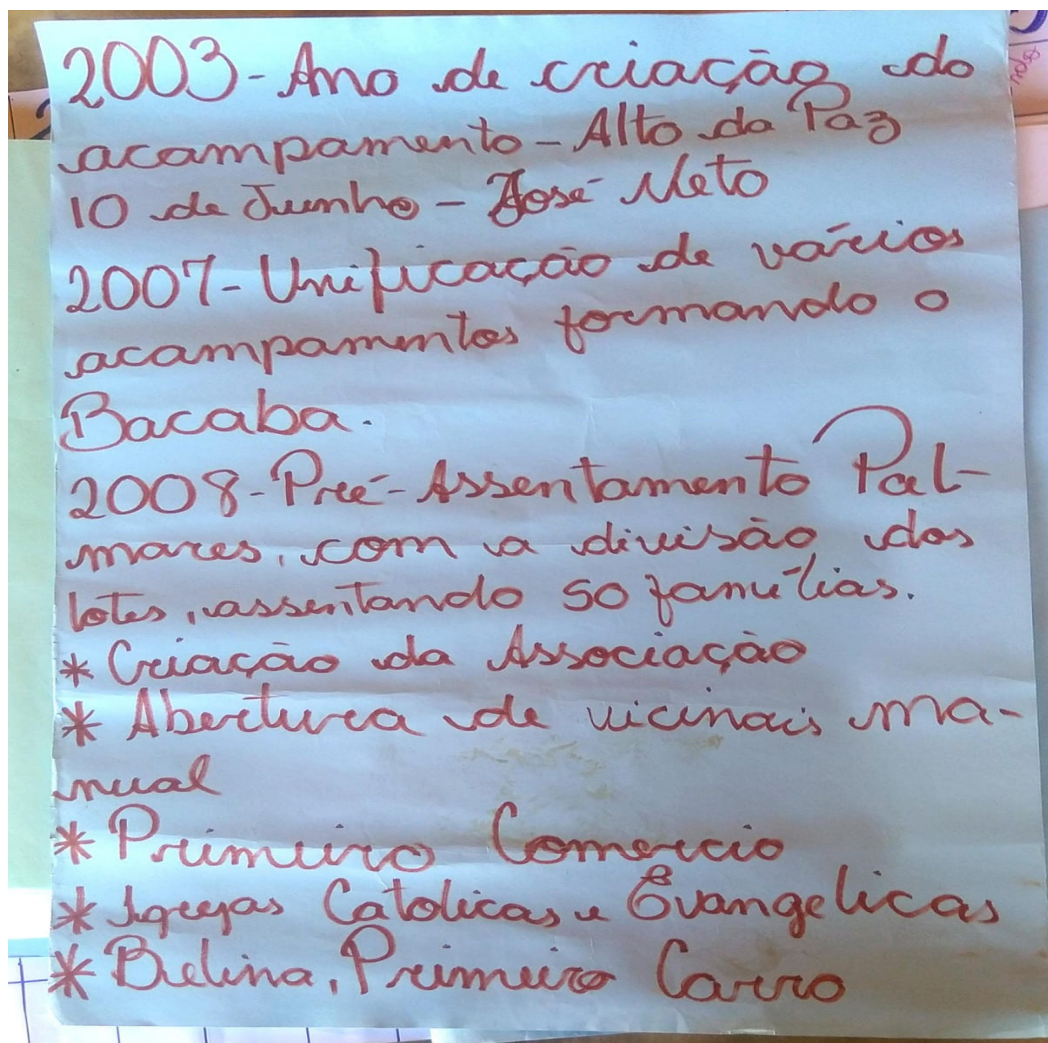 2003-Ano de criação do
acampamento-Alto da Paz
10 de Junho-José Neto
2007-Unificação de vários
acampamentos formando o
Bacaba.
2008-Pré-Assentamento Pal-
mares, com a divisão dos
lotes, assentando 50 famílias.
* Criação da Associação
* Abertura de vicinais ma-
nual
* Primeiro Comercio
* Igrejas Catolicas e Evangelicas
* Belina, Primeiro Carro